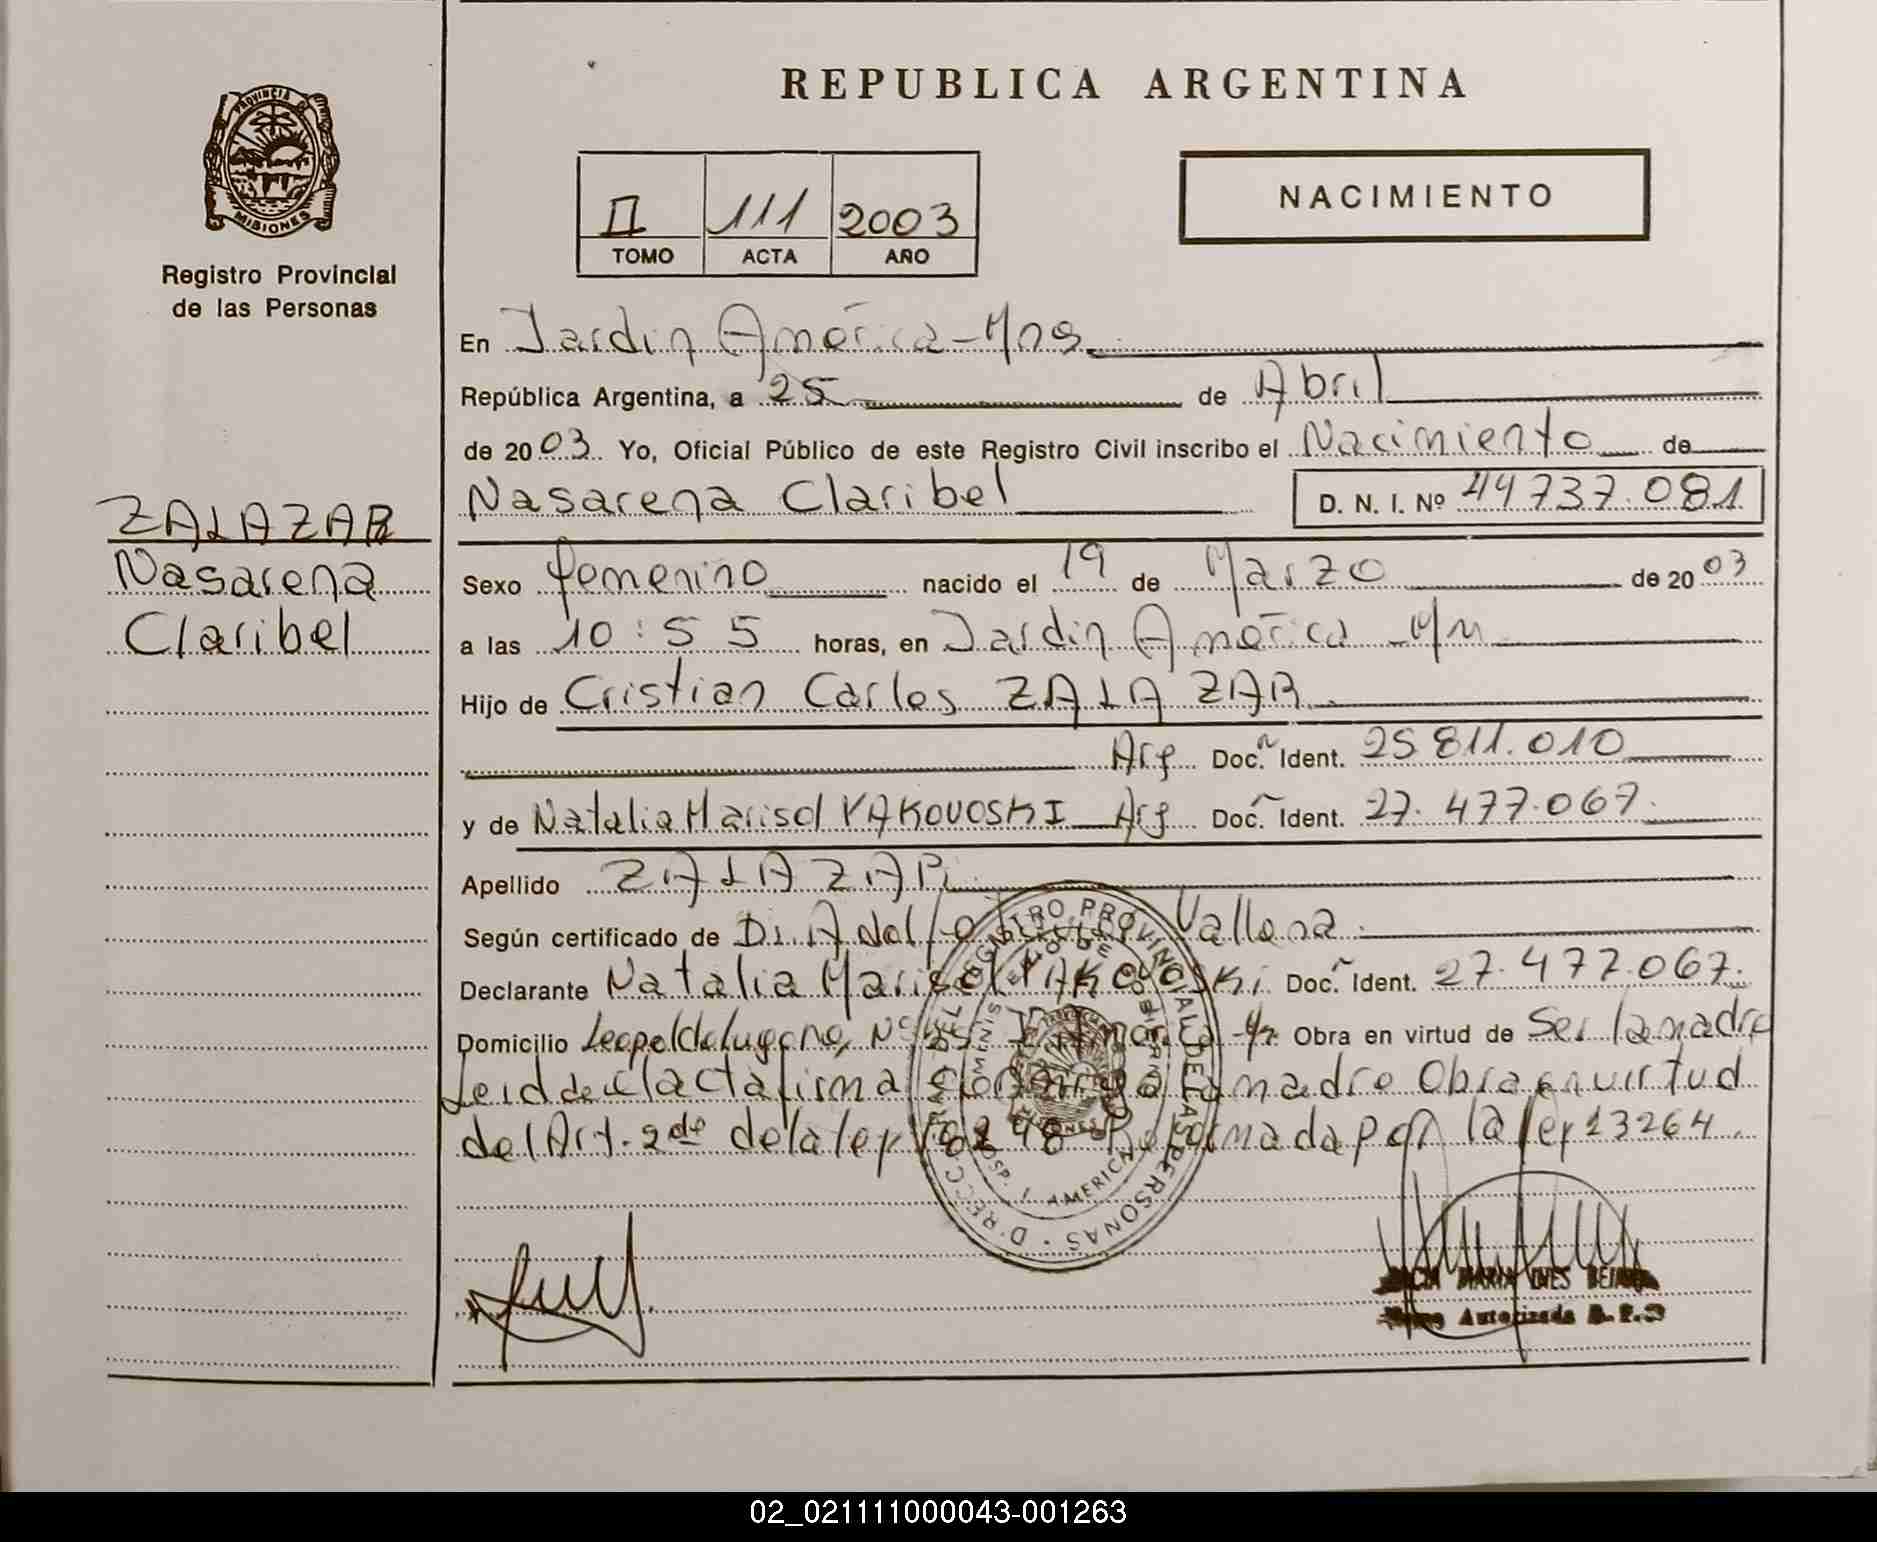 REPUBLICA ARGENTINA
PROVINCIA DE
MISIONES
Registro Provincial
de las Personas
II 111 2003
TOMO ACTA AÑO
NACIMIENTO
En Jardin América - Mns.
República Argentina, a 25 de Abril
de 2003 Yo, Oficial Público de este Registro Civil inscribo el Nacimiento de
Nasarena Claribel D. N. I. Nº 44737.081
ZALAZAR
Nasarena
Claribel
Sexo femenino nacido el 19 de Marzo de 2003
a las 10:55 horas, en Jardin América - Mn
Hijo de Cristian Carlos ZALAZAR
Arg Doc. Ident. 25811.010
y de Natalia Marisol YAKOVOSKI Arg Doc. Ident. 27.477.067.
Apellido ZALAZAR
Según certificado de Dr. Adolfo Vallena
Declarante Natalia Marisol YAKOVOSKI Doc. Ident. 27.477.067.
Domicilio Leopoldo Lugone, Nº Obra en virtud de Ser la madre
Leida el acta firma la madre Obra en virtud
del Art. 2do de la ley Reformada por la ley 13264.
REGISTRO PROVINCIAL DE LAS PERSONAS
HOSP. J. AMERICA
MARIA INES
Autorizada
02_021111000043-001263